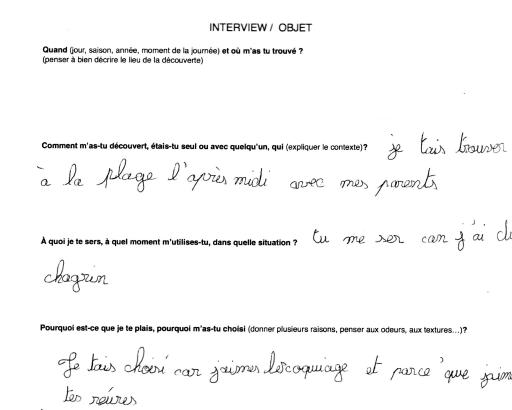 INTERVIEW / OBJET
Quand (jour, saison, année, moment de la journée) et où m'as tu trouvé ?
(penser à bien décrire le lieu de la découverte)
Comment m'as-tu découvert, étais-tu seul ou avec quelqu'un, qui (expliquer le contexte)? je tais trouver
à la plage l'après midi avec mes parents
À quoi je te sers, à quel moment m'utilises-tu, dans quelle situation ? tu me ser can j'ai du
chagrin
Pourquoi est-ce que je te plais, pourquoi m'as-tu choisi (donner plusieurs raisons, penser aux odeurs, aux textures...)?
Je tais choisi car j'aimes lescoquiage et parce 'que jaime
tes